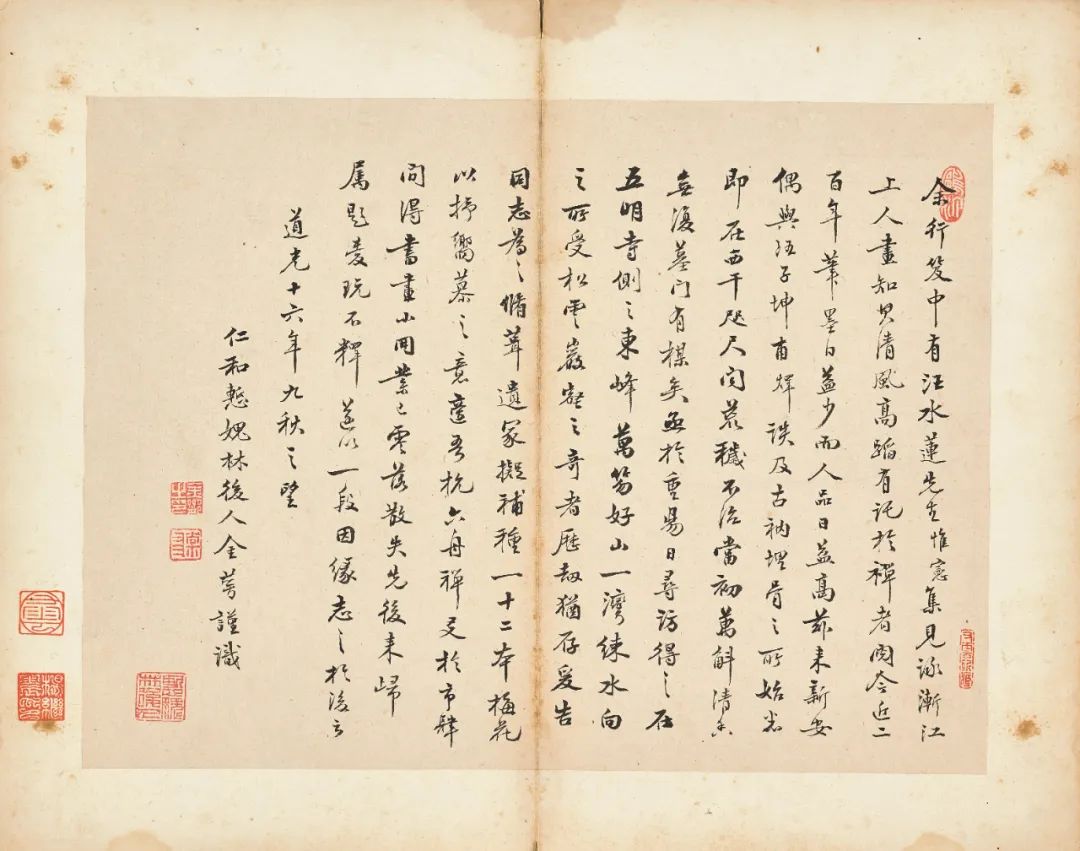 余行笈中有汪水蓮先生惟憲集見詠漸江
上人畫知其清風高蹈有託於禪者閱今近二
百年筆墨日益少而人品日益高茲來新安
偶與子坤甫焯談及古衲埋骨之所始知
即在西干咫尺間荒穢不治當初萬斛清香
無復墓門有楳矣亟於重昜日尋訪得之在
五明寺側之東峰萬笏好山一灣練水向
之所受松雲巖壑之奇者歷劫猶存爰告
同志為之脩葺遺冢擬補種一十二本梅花
以抒嚮慕之意適吾杭六舟禪友於市肆
間得書畫小冊業已零落散失先後來歸
屬題愛玩不釋遂以一段因緣志之於後云
道光十六年九秋之望
仁和慙媿林後人金蕚謹識